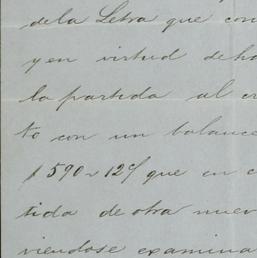 dela Letra que con
y en virtud de ha
la partida al cr
to con un balance
$590~12 que en c
tida de otra nuev
viendose examina